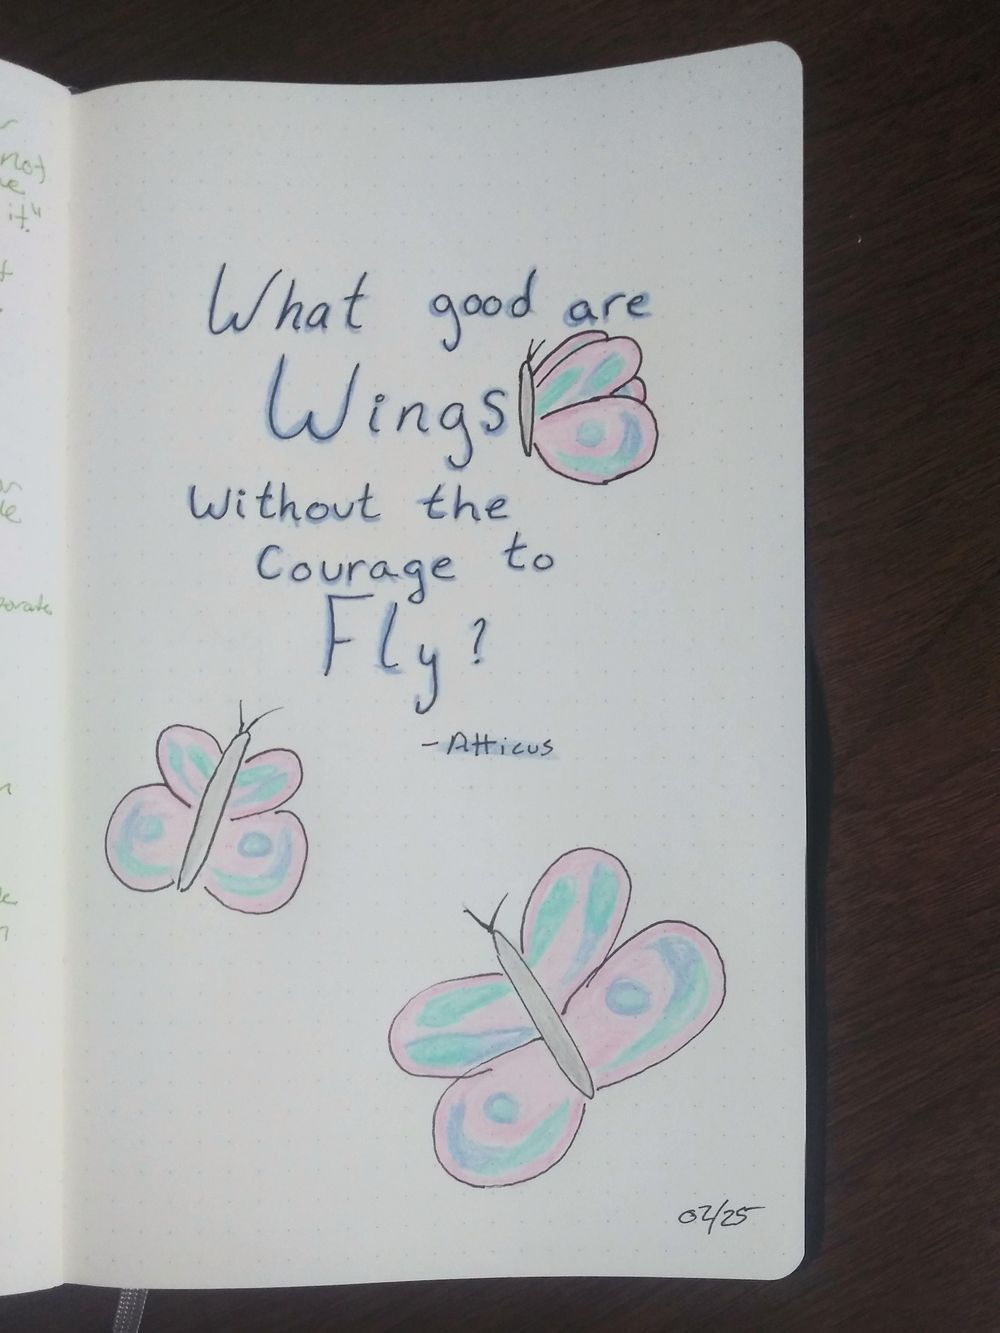 not
it."
What good are
Wings
Without the
Courage to
Fly?
- Atticus
02/25